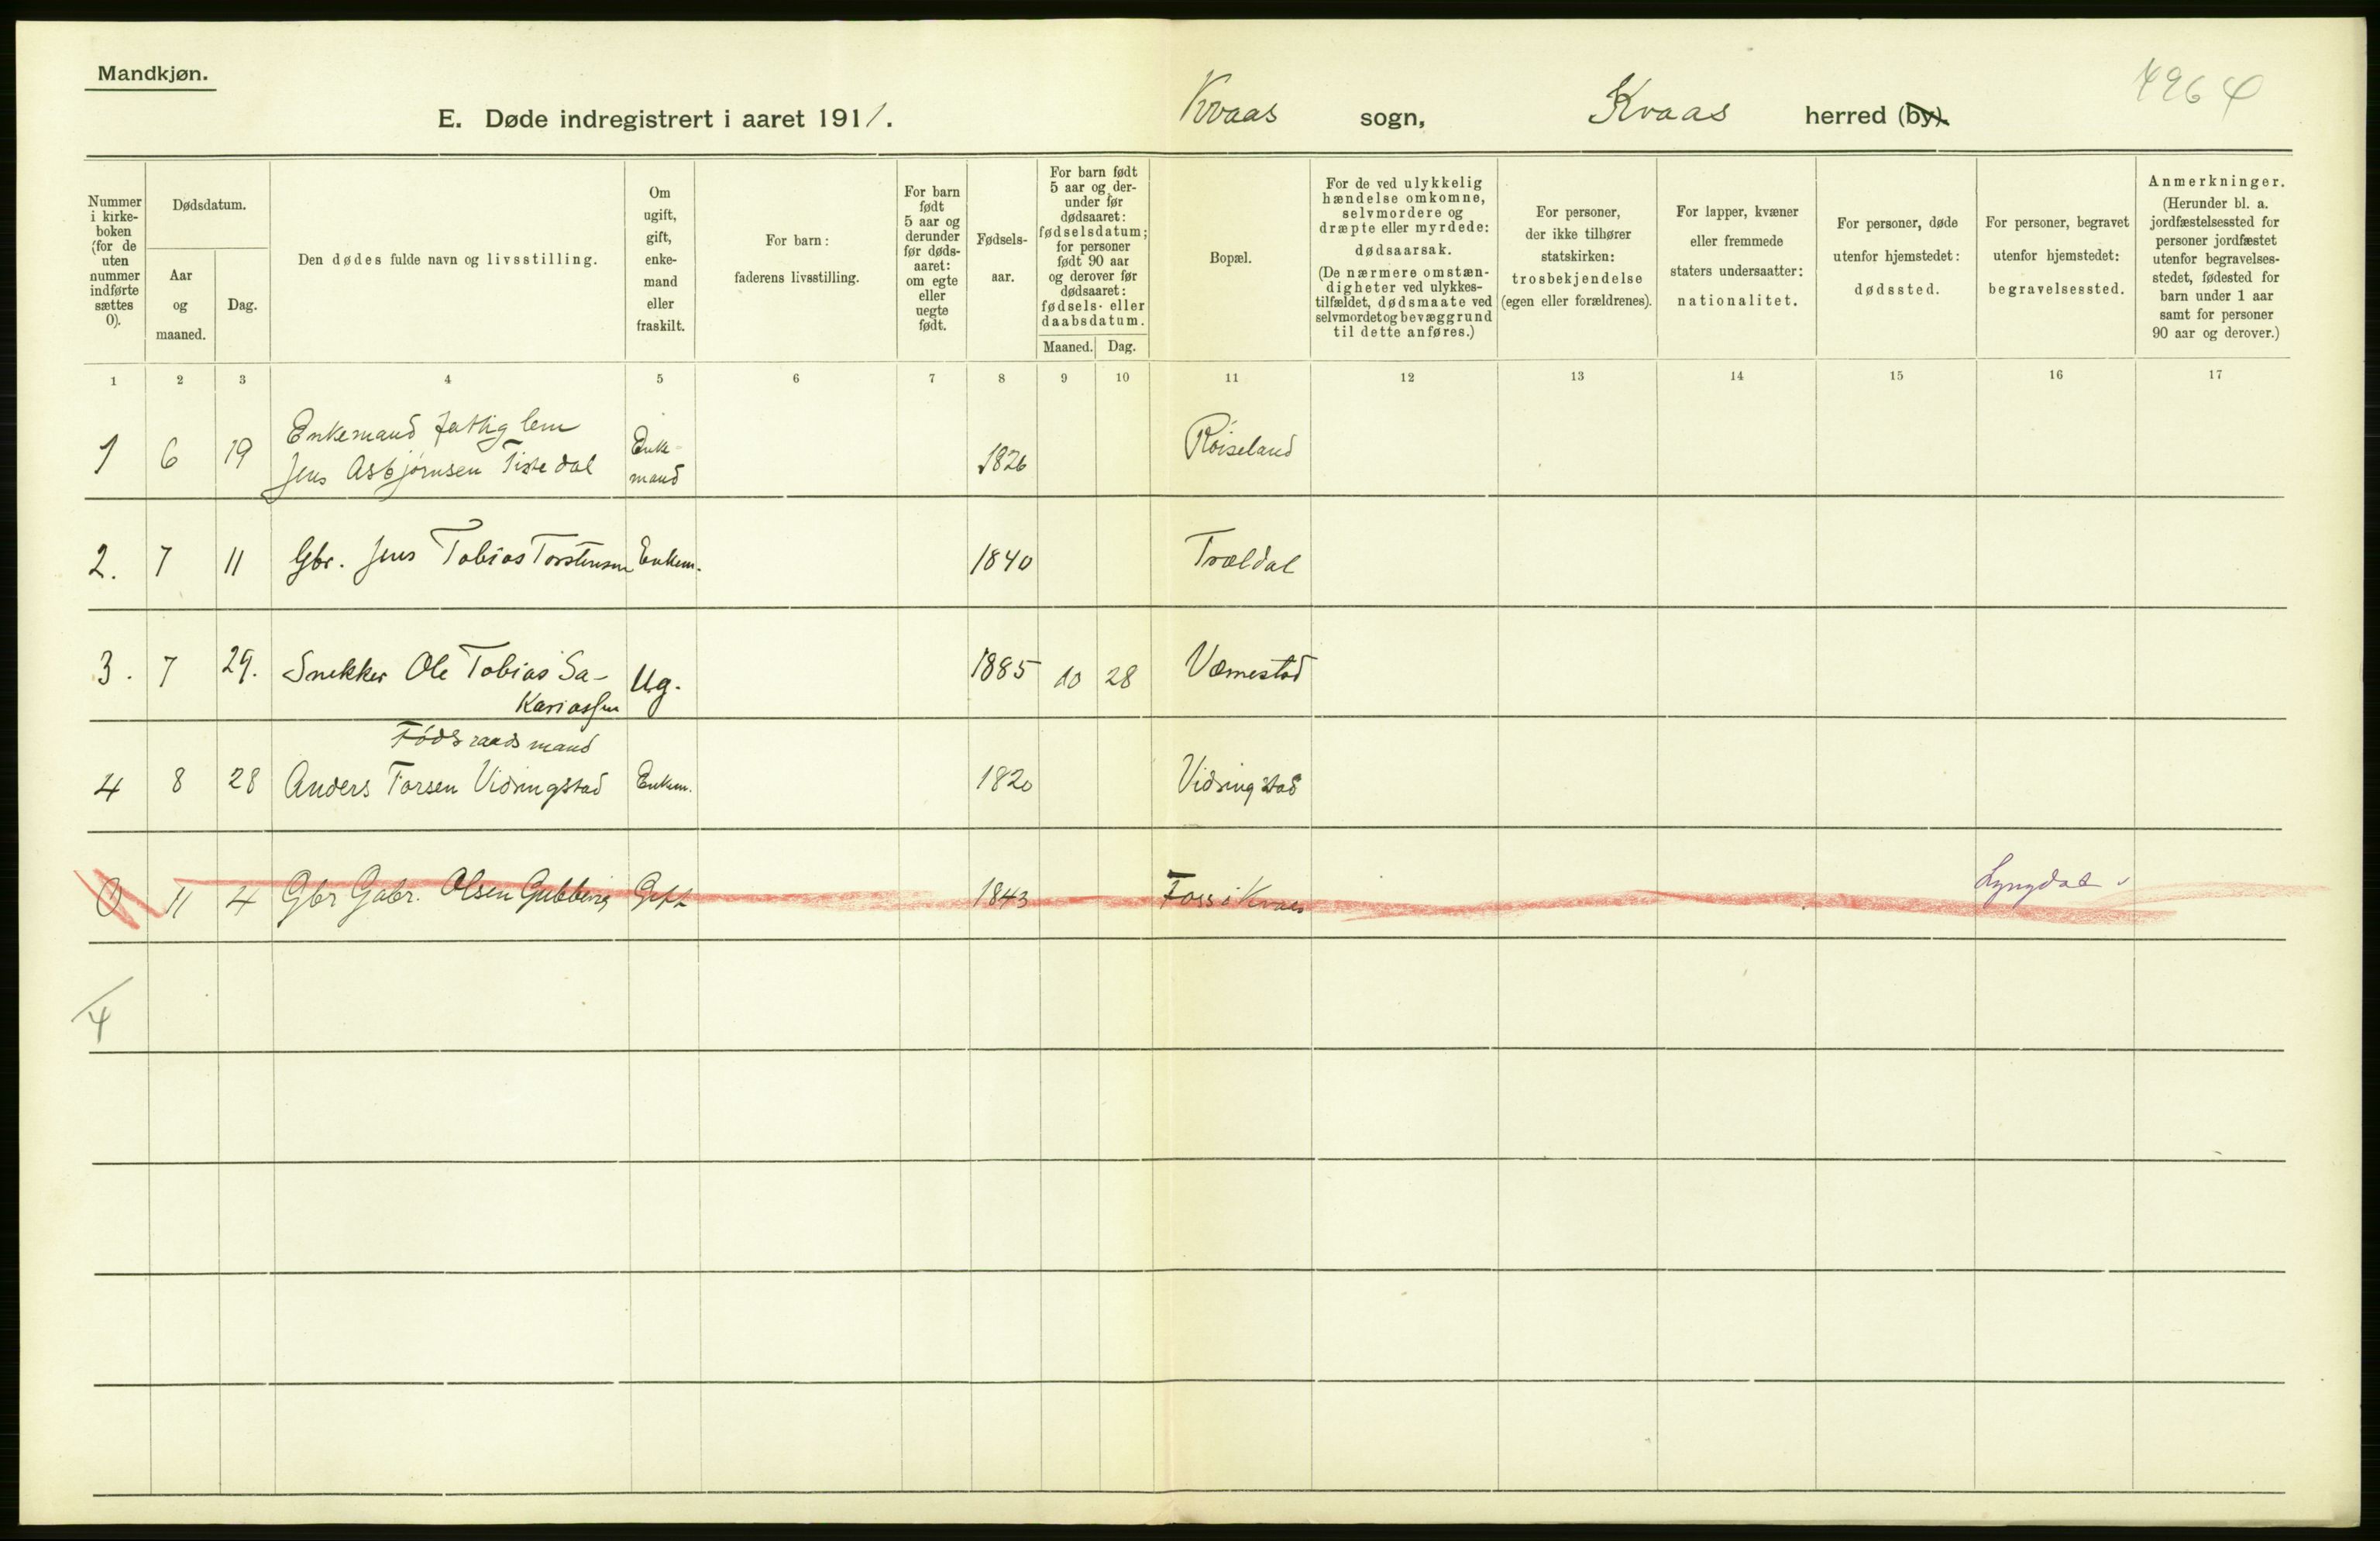 Mandkjøn.
E. Døde indregistrert i aaret 1911.
Kvaas sogn, Kvaas herred (by).
4964
Nummer i kirkeboken (for de uten nummer indførte sættes 0).
Dødsdatum.
Aar og maaned.
Dag.
Den dødes fulde navn og livsstilling.
Om ugift, gift, enkemand eller fraskilt.
For barn: faderens livsstilling.
For barn født 5 aar og derunder før dødsaaret: om egte eller uegte født.
Fødselsaar.
For barn født 5 aar og derunder før dødsaaret: fødselsdatum; for personer født 90 aar og derover før dødsaaret: fødsels- eller daabsdatum.
Maaned. Dag.
Bopæl.
For de ved ulykkelig hændelse omkomne, selvmordere og dræpte eller myrdede: dødsaarsak. (De nærmere omstændigheter ved ulykkestilfældet, dødsmaate ved selvmord et og bevæggrund til dette anføres.)
For personer, der ikke tilhører statskirken: trosbekjendelse (egen eller forældrenes).
For lapper, kvæner eller fremmede staters undersaatter: nationalitet.
For personer, døde utenfor hjemstedet: dødssted.
For personer, begravet utenfor hjemstedet: begravelsessted.
Anmerkninger. (Herunder bl. a. jordfæstelsessted for personer jordfæstet utenfor begravelsesstedet, fødested for barn under 1 aar samt for personer 90 aar og derover.)
1 2 3 4 5 6 7 8 9 10 11 12 13 14 15 16 17
Enkemand fattiglem
1 6 19 Jens Asbjørnsen Tistedal Enkemand 1826 Röiseland
2. 7 11 Gbr. Jens Tobias Torstensen Enkem. 1840 Trældal
3. 7 29. Snekker Ole Tobias Sa- Ug. 1885 10 28 Væmestad
Kariassen
Födsraadsmand
4 8 28 Anders Torsen Vidringstad Enkem. 1820 Vidringstad
0 11 4 Gbr Gabr. Olsen Gift 1843 Foss i Kvaas Lyngdal
4